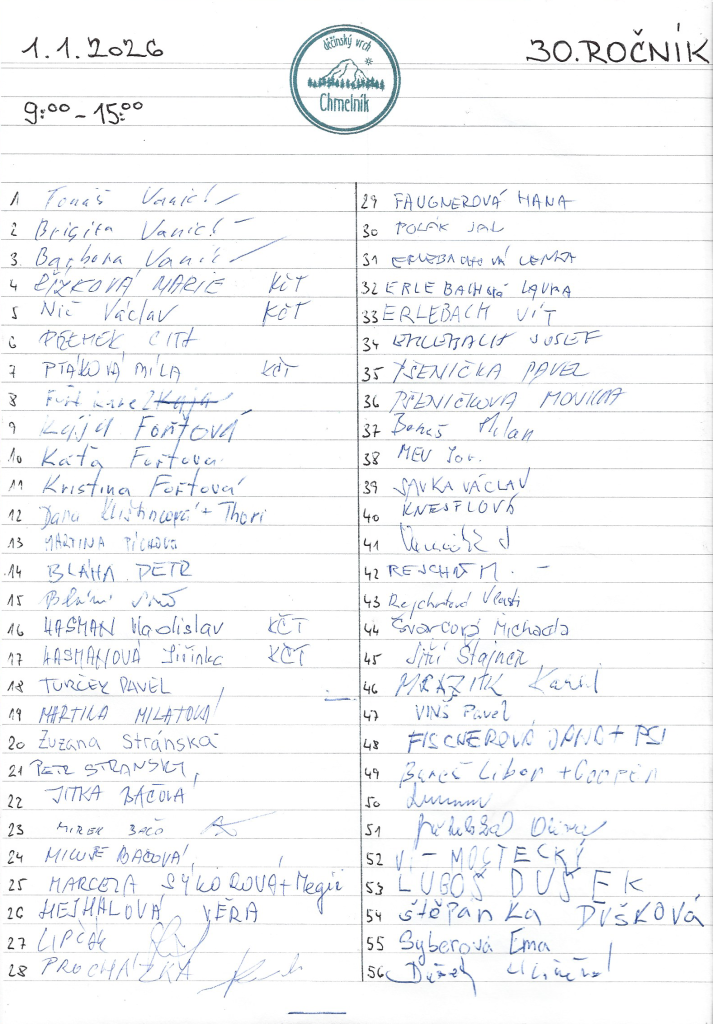 1.1.2026
děčínský vrch
Chmelník
30.ROČNÍK
9:00-15:00
1 Tomáš Vanic
2 Brigita Vanic
3. Barbora Vanic
4 ŘÍZKOVÁ MARIE KČT
5 Nič Václav KČT
6
7 PTÁKOVÁ MÍLA KČT
8
9 Kája Fořtová
10 Kata Fořtova
11 Kristina Fořtová
12 Dana + Thori
13 MARTINA
14 BLÁHA PETR
15
16 HASMAN Vladislav KČT
17 HASMANOVÁ Jiřinka KČT
18 TURČEK PAVEL
19 MARTINA MILATOVÁ
20 Zuzana Stránská
21 PETR STRANSKÝ
22 JITKA BAČOVÁ
23 MIREK BAČO
24 BACOVÁ
25 MARCELA SÝKOROVÁ+Megii
26 HEJHALOVÁ VĚRA
27 LIPČÁK
28 PROCHÁZKA
29 FAUGNEROVÁ HANA
30 POLÁK JAN
31 ERLEBACHOVÁ LENKA
32 ERLEBACHOVÁ LAURA
33 ERLEBACH VÍT
34 ERLEBACH JOSEF
35 PŠENIČKA PAVEL
36 PŠENIČKOVA MONIKA
37 Beneš Milan
38
39 SAVKA VÁCLAV
40 KNESFLOVÁ
41
42 REJCHRT M. -
43 Rejchrtová Vlasti
44 Švarcová Michaela
45 Jiří Štajner
46 MRÁZIK Karel
47 VINŠ Pavel
48 FISCHEROVÁ JANA + PSI
49 Bareš Libor + Cooper
50
51
52 V. - MOSTECKÝ
53 LUBOŠ DUŠEK
54 štěpanka DUŠKOVÁ
55 Syberová Ema
56